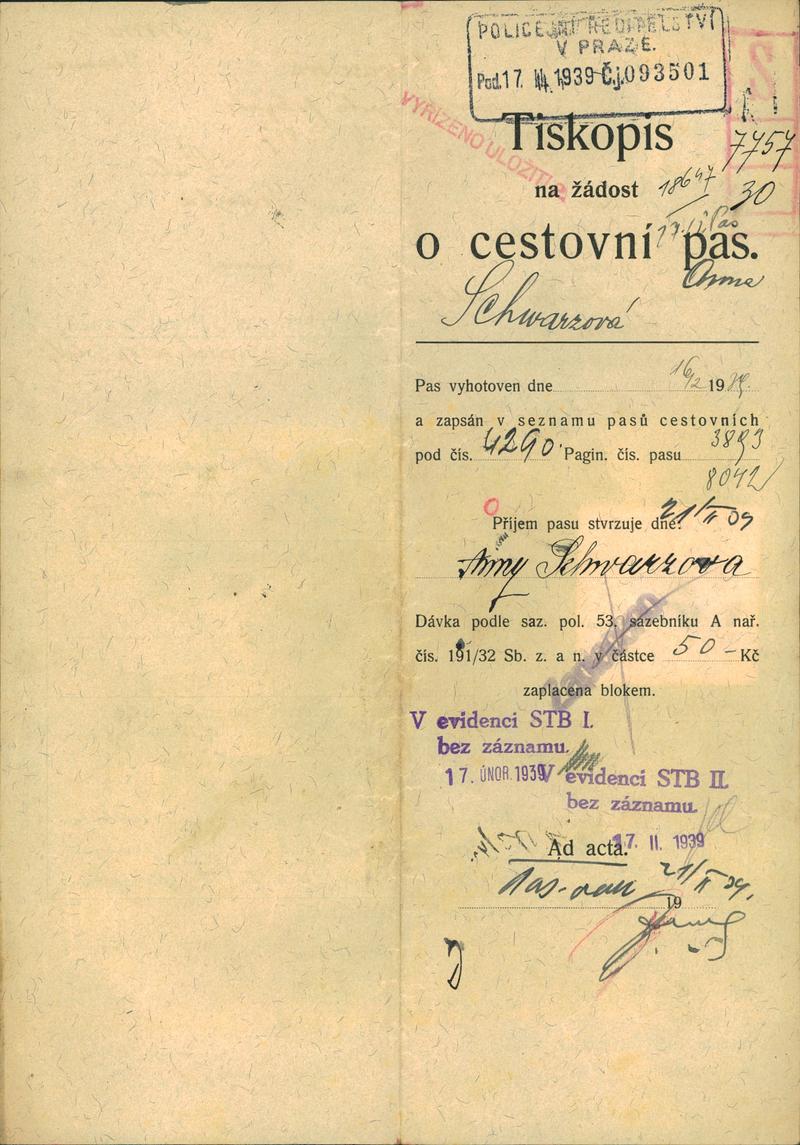 POLICEJNÍ ŘEDITELSTVÍ
V PRAZE.
Pod. 17. 1939 Č.j. 093501
VYŘÍZENO ULOŽITI
Tiskopis
7757
na žádost
18647
30
o cestovní pas.
Anna
Schwarzová
Pas vyhotoven dne 16/2 1939.
a zapsán v seznamu pasů cestovních
pod čís. 4290 Pagin. čís. pasu 3893
8042
Příjem pasu stvrzuje dne: 21/II 39
Anny Schwarzova
Dávka podle saz. pol. 53, sazebníku A nař.
čís. 191/32 Sb. z. a n. v částce 50 - Kč
zaplacena blokem.
V evidenci STB I.
bez záznamu.
17. ÚNOR. 1939
V evidenci STB II.
bez záznamu.
17. II. 1939
Ad acta.
21/II 39.
19